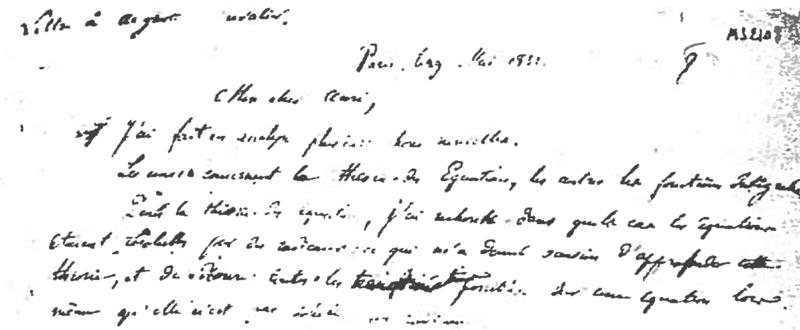 Lettre à
Paris, le 29 Mai 1832. MS2108
Mon cher Ami,
J'ai fait en analyse plusieurs choses nouvelles.
Les unes concernent la théorie des Equations, les autres les fonctions Intégrales
Dans la théorie des équations, j'ai recherché dans quels cas les équations
étaient résolubles par des radicaux : ce qui m'a donné occasion d'approfondir cette
théorie, et de décrire toutes les sur une équation lors
même qu'elle n'est pas